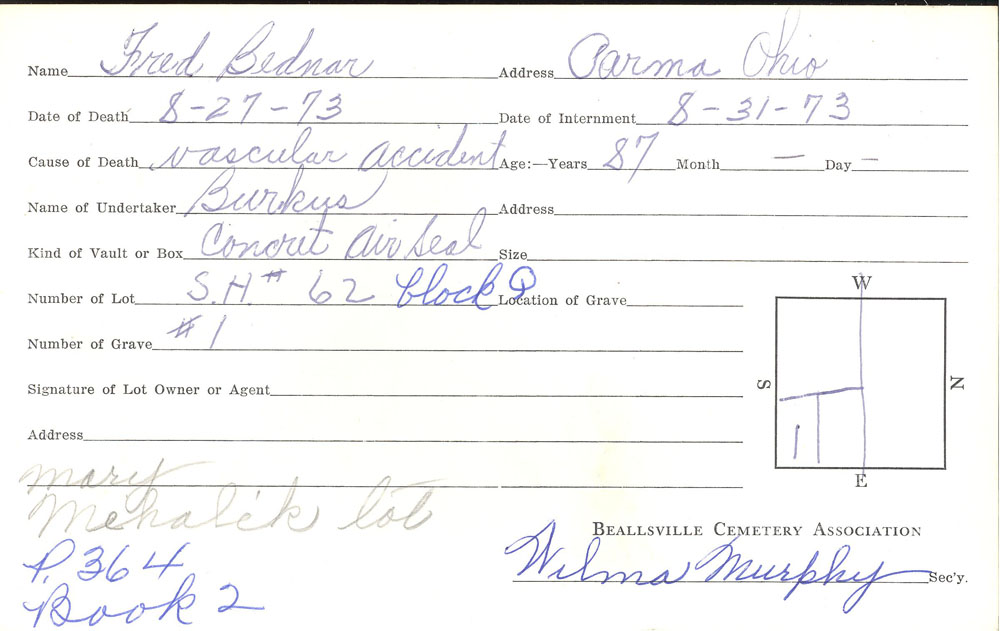 Name Fred Bednar Address Parma Ohio
Date of Death 8-27-73 Date of Internment 8-31-73
Cause of Death vascular accident Age:—Years 87 Month — Day —
Name of Undertaker Burkus Address
Kind of Vault or Box Concret Air Seal Size
Number of Lot S.H.# 62 block Q Location of Grave
Number of Grave #1
Signature of Lot Owner or Agent
Address
W
S
N
1
E
mary
Mehalik lot
P. 364
Book 2
BEALLSVILLE CEMETERY ASSOCIATION
Wilma Murphy Sec'y.